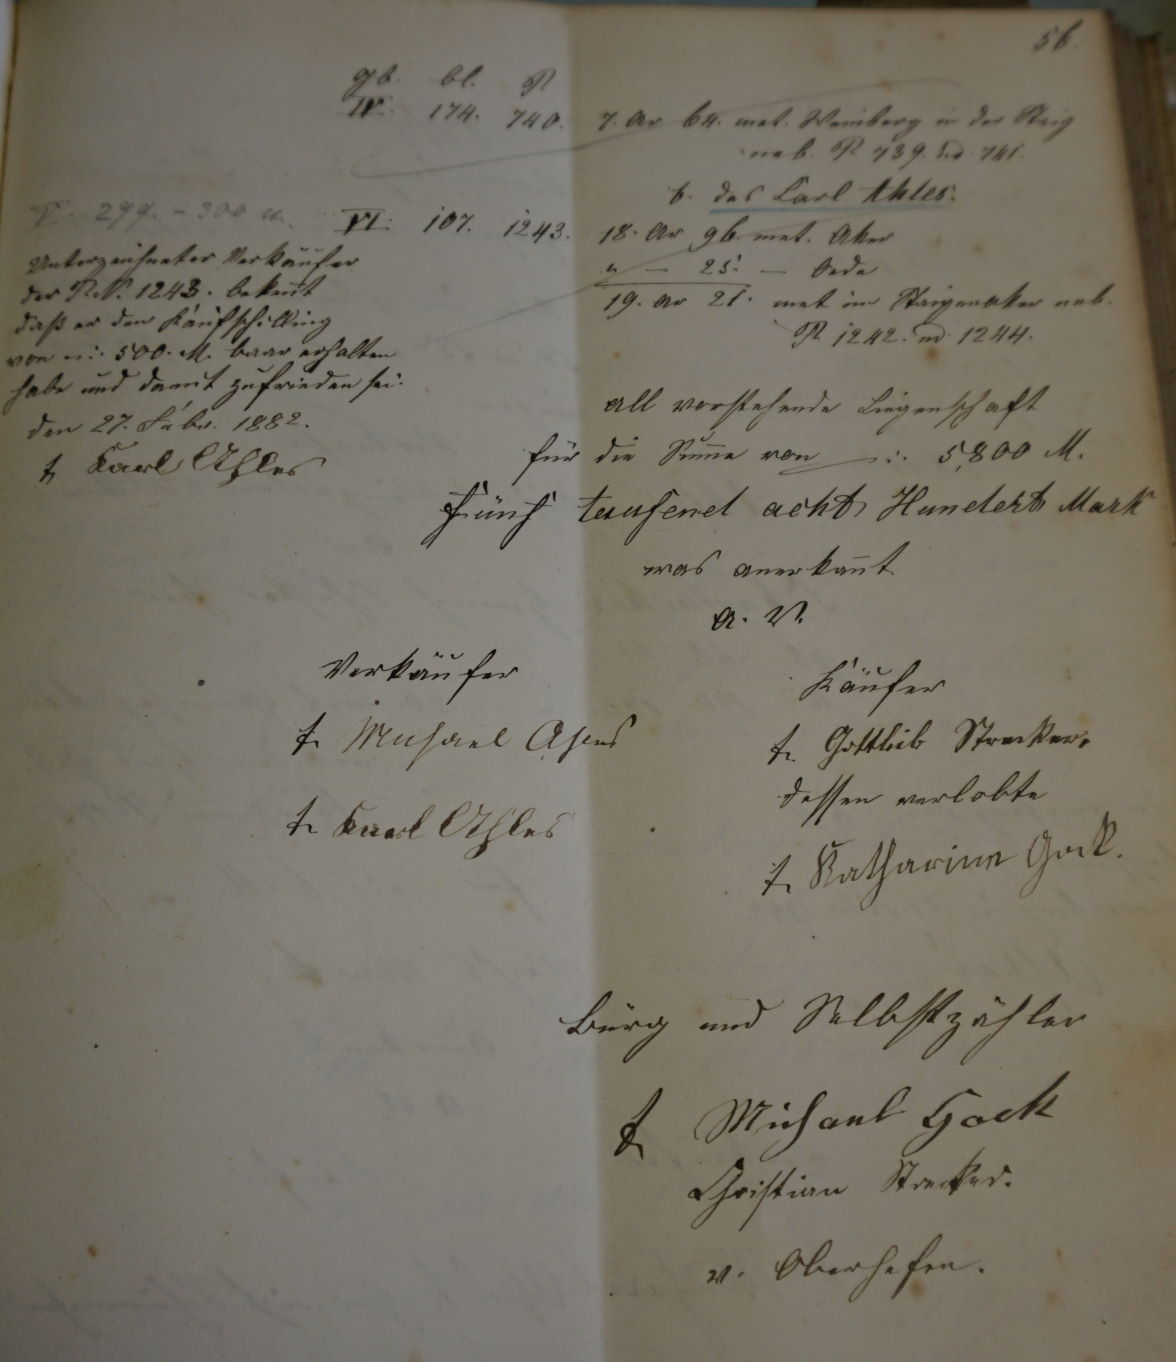 56.
gb. bl. P
IV. 174. 740. 7. Ar 64. met. Weinberg in der Steig
neb. P 739. und 741.
b. des Carl Ahles.
V. 299. - 300 u. VI. 107. 1243. 18. Ar 96. met. Aker
" — 25. — Oede
19. Ar 21. met im Steigenaker neb.
P 1242. und 1244.
Unterzeichneter Verkäufer
der P.N. 1243. bekent
daß er den Kaufschilling
von -:. 500. M. baar erhalten
habe und damit zufrieden sei.
den 27. Febr. 1882.
t. Karl Ahles
all vorstehende Liegenschaft
für die Sume von -:. 5,800 M.
Fünf tausend acht Hundert Mark
was anerkant
a. V.
Verkäufer
t. Michael Ahles
t. Karl Ahles
Käufer
t. Gottlieb Strecker.
dessen verlobte
t. Katharine Gock.
Bürg und Selbstzahler
t. Michael Gock
Christian Strecker.
v. Oberhofen.